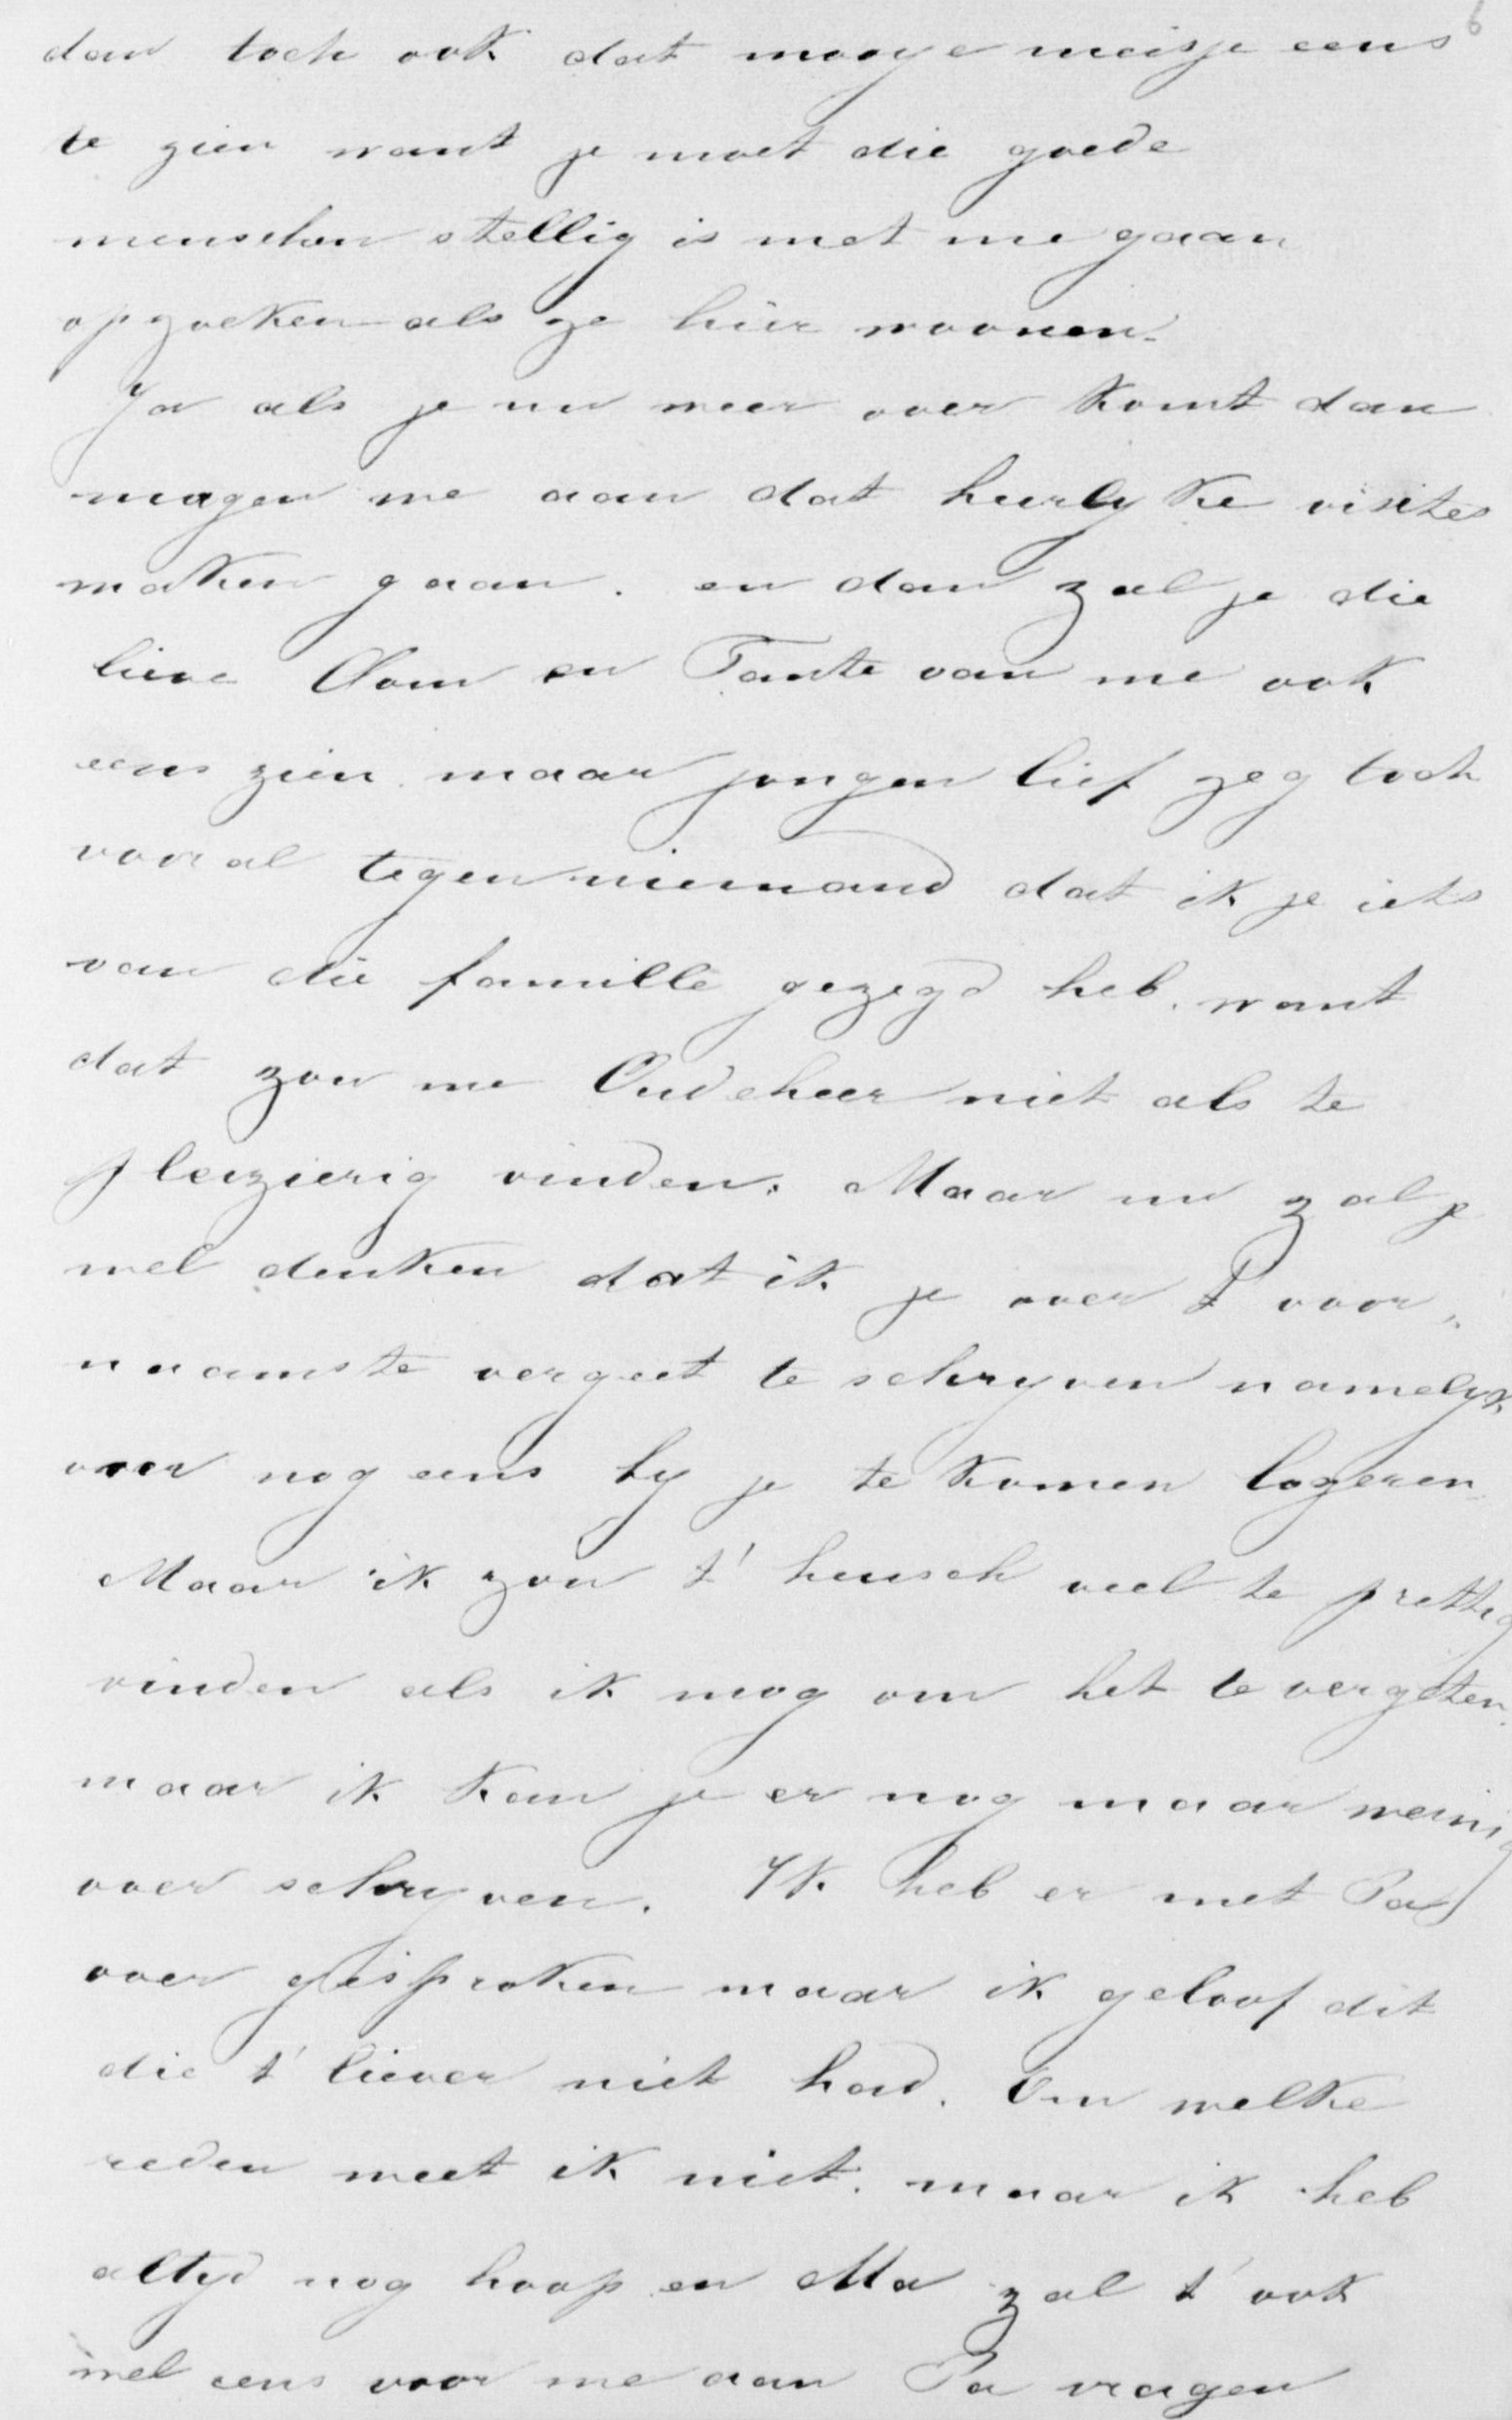 6
dan toch ook dat mooye meisje eens
te zien want je moet die goede
menschen stellig is met me gaan
opzoeken als ze hier woonen.
Ja als je nu weer over komt dan
mogen we aan dat heerlyke visites
maken gaan. en dan zal je die
lieve Oom en Tante van me ook
eens zien. maar jongen lief zeg toch
vooral tegen niemand dat ik je iets
van die famille gezegd heb. want
dat zou me Oudeheer niet als te
pleizierig vinden. Maar nu zal je
wel denken dat ik je over t voor„
naamste vergeet te schryven namelyk
over nog eens by je te komen logeren
Maar ik zou t' heusch veel te prettig
vinden als ik mog om het te vergeten.
maar ik kan je er nog maar weinig
over schryven. Ik heb er met Pa
over gesproken maar ik geloof dit
die t' liever niet had. Om welke
reden weet ik niet. maar ik heb
altyd nog hoop en Ma zal t' ook
wel eens voor me aan Pa vragen